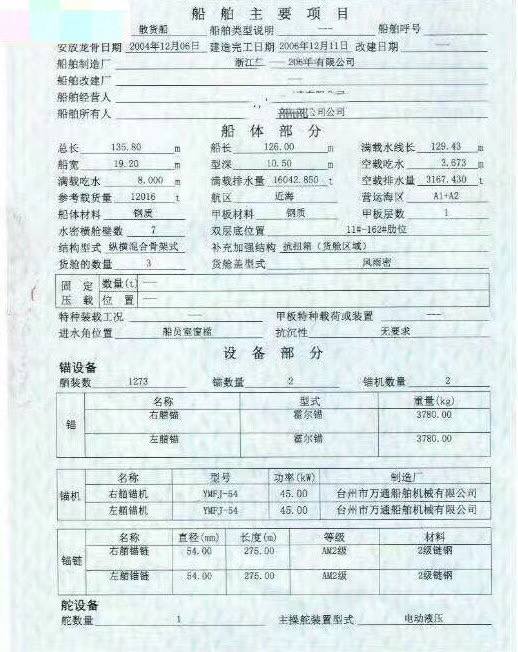 船 舶 主 要 项 目
散货船 船舶类型说明 —— 船舶呼号
安放龙骨日期 2004年12月06日 建造完工日期 2006年12月11日 改建日期 ——
船舶制造厂 浙江 有限公司
船舶改建厂 ——
船舶经营人
船舶所有人 公司
船 体 部 分
总长 135.80 m 船长 126.00 m 满载水线长 129.43 m
船宽 19.20 m 型深 10.50 m 空载吃水 3.673 m
满载吃水 8.000 m 满载排水量 16042.850 t 空载排水量 3167.430 t
参考载货量 12016 t 航区 近海 营运海区 A1+A2
船体材料 钢质 甲板材料 钢质 甲板层数 1
水密横舱壁数 7 双层底位置 11#-162#肋位
结构型式 纵横混合骨架式 补充加强结构 抗扭箱（货舱区域）
货舱的数量 3 货舱盖型式 风雨密
固 定 数量(t) ——
压 载 位 置 ——
特种装载工况 —— 甲板特种载荷或装置 ——
进水角位置 船员室窗槛 抗沉性 无要求
设 备 部 分
锚设备
舾装数 1273 锚数量 2 锚机数量 2
锚
名称 型式 重量(kg)
右艏锚 霍尔锚 3780.00
左艏锚 霍尔锚 3780.00
锚机
名称 型号 功率(kW) 制造厂
右艏锚机 YMFJ-54 45.00 台州市万通船舶机械有限公司
左艏锚机 YMFJ-54 45.00 台州市万通船舶机械有限公司
锚链
名称 直径(mm) 长度(m) 等级 材料
右艏锚链 54.00 275.00 AM2级 2级链钢
左艏锚链 54.00 275.00 AM2级 2级链钢
舵设备
舵数量 1 主操舵装置型式 电动液压